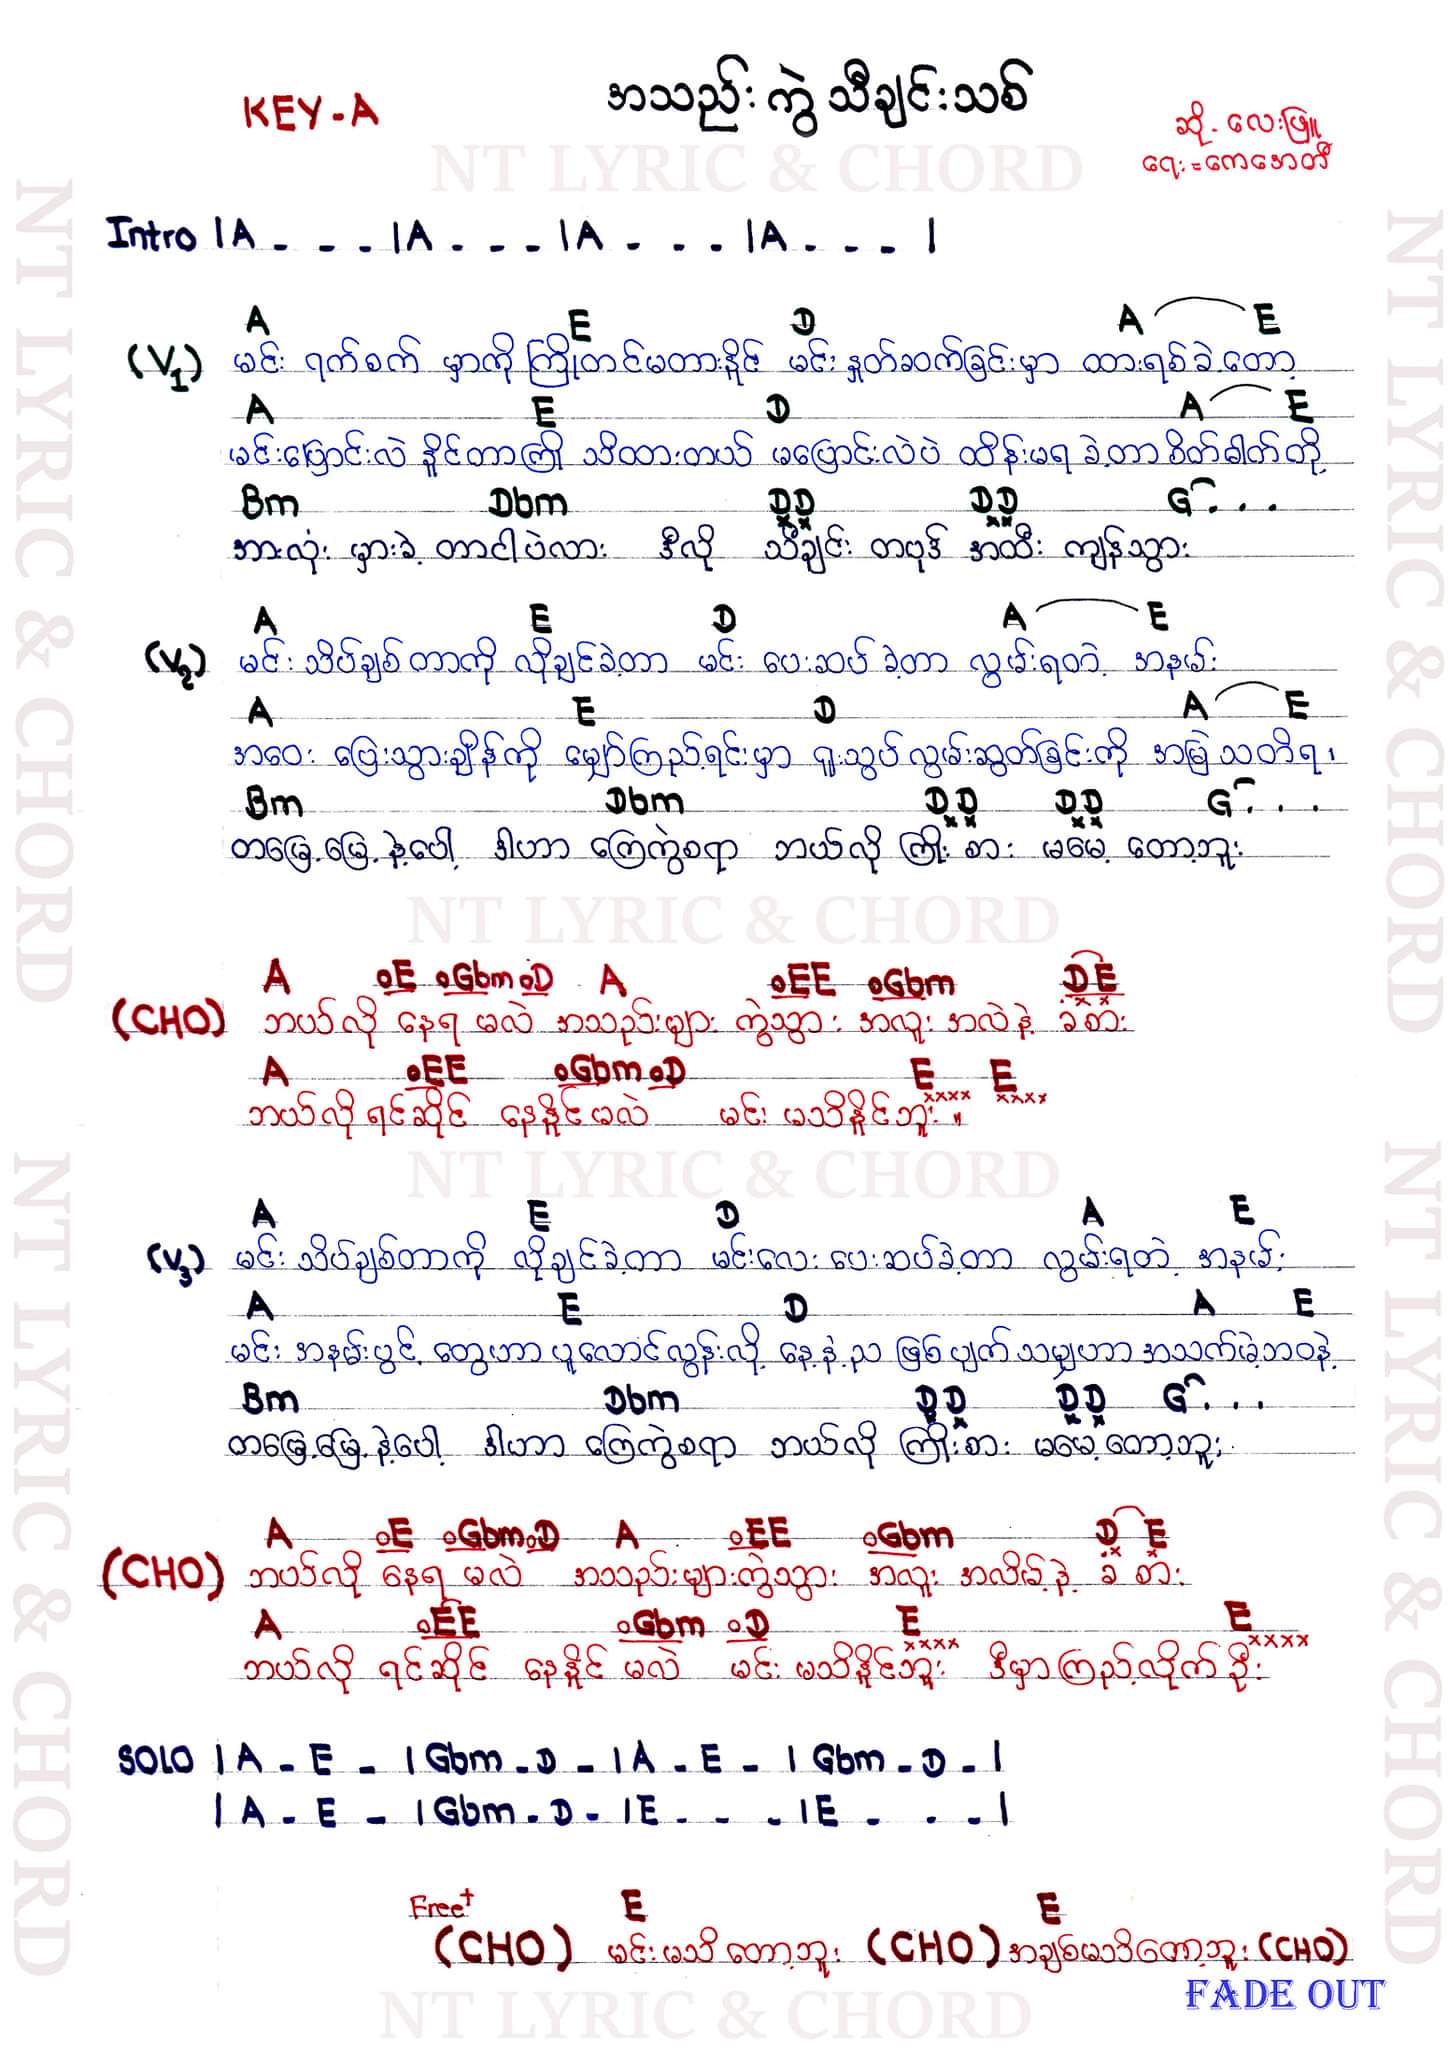 KEY-A
အသည်းကွဲ သီချင်းသစ်
ဆို - လေးဖြူ
ရေး = ကေအေတီ
NT LYRIC & CHORD
Intro |A - - - |A - - - |A - - - |A - - - |
A E D A E
(V1) မင်း ရက်စက် မှာကို ကြိုတင်မတားနိုင် မင်း နှုတ်ဆက်ခြင်းမှာ ထားရစ်ခဲ့တော့
A E D A E
မင်းပြောင်းလဲ နိုင်တာကြို သိထားတယ် မပြောင်းလဲပဲ ထိန်းမရ ခဲ့တာ စိတ်ဓါတ်တို့
Bm Dbm DD DD G . . .
အားလုံး မှားခဲ့ တာငါပဲလား ဒီလို သီချင်း တပုဒ် အထီး ကျန်သွား
A E D A E
(V2) မင်း သိပ်ချစ်တာကို လိုချင်ခဲ့တာ မင်း ပေးဆပ် ခဲ့တာ လွမ်းရတဲ့ အနမ်း
A E D A E
အဝေး ပြေးသွားချိန်ကို မျှော်ကြည့်ရင်းမှာ ရူးသွပ် လွမ်းဆွတ်ခြင်းကို အမြဲ သတိရ၊
Bm Dbm DD DD G . . .
တမြေ့မြေ့ နဲ့ပေါ့ ဒါဟာ ကြေကွဲစရာ ဘယ်လို ကြိုးစား မမေ့ တော့ဘူး
NT LYRIC & CHORD
A oE oGbm oD A oEE oGbm DE
(CHO) ဘယ်လို နေရ မလဲ အသည်းများ ကွဲသွား အလူး အလဲနဲ့ ခံစား
A oEE oGbm oD E xxxx E xxxx
ဘယ်လို ရင်ဆိုင် နေနိူင်မလဲ မင်း မသိနိူင်ဘူး ။
NT LYRIC & CHORD
A E D A E
(V3) မင်း သိပ်ချစ်တာကို လိုချင်ခဲ့တာ မင်းလေး ပေးဆပ်ခဲ့တာ လွမ်းရတဲ့ အနမ်း
A E D A E
မင်း အနမ်းပွင့် တွေဟာ ပူလောင်လွန်းလို့ နေ့နဲ့ည ဖြစ်ပျက် သမျှဟာ အသက်မဲ့ဘဝနဲ့
Bm Dbm DD DD G . . .
တမြေ့မြေ့ နဲ့ပေါ့ ဒါဟာ ကြေကွဲစရာ ဘယ်လို ကြိုးစား မမေ့ တော့ဘူး
A oE oGbm oD A oEE oGbm D E
(CHO) ဘယ်လို နေရ မလဲ အသည်းများကွဲသွား အလူး အလိမ့်နဲ့ ခံ စား
A oEE oGbm oD E xxxx E xxxx
ဘယ်လို ရင်ဆိုင် နေနိူင် မလဲ မင်း မသိနိူင်ဘူး ဒီမှာကြည့်လိုက် ဦး
SOLO | A - E - | Gbm - D - | A - E - | Gbm - D - |
| A - E - | Gbm - D - | E - - - | E - - - |
Free+ E E
(CHO) မင်းမသိ တော့ဘူး (CHO) အချစ်မသိတော့ဘူး (CHO)
FADE OUT
NT LYRIC & CHORD
NT LYRIC & CHORD
NT LYRIC & CHORD
NT LYRIC & CHORD
NT LYRIC & CHORD